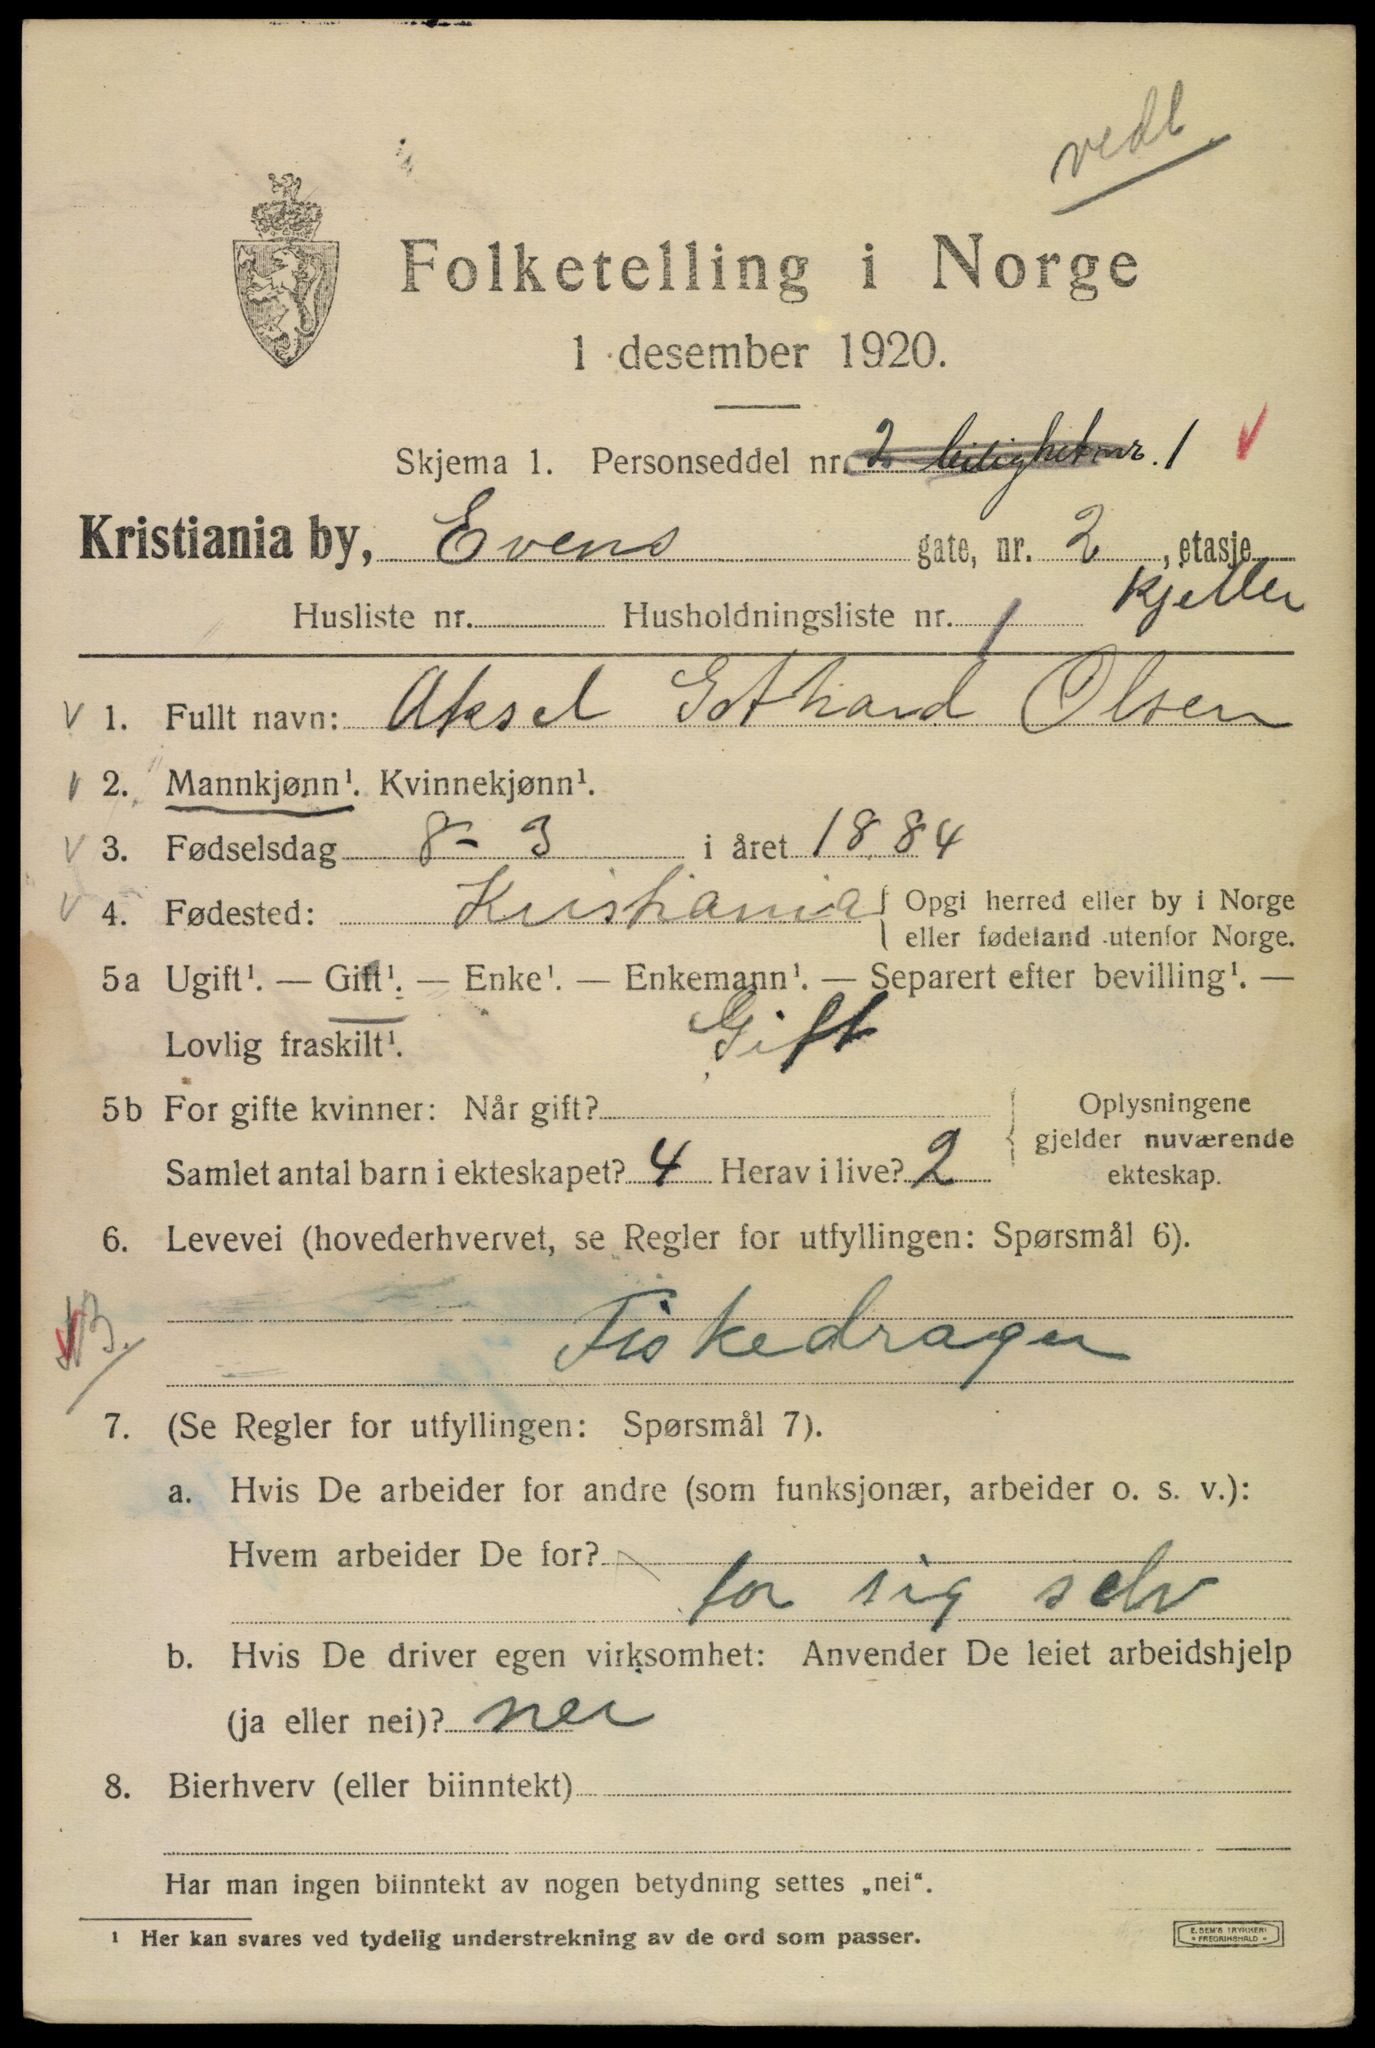 vedl.
Folketelling i Norge
1 desember 1920.
Skjema 1. Personseddel nr. 2 leilighet nr. 1
Kristiania by, Evens gate, nr. 2, etasje
kjeller
Husliste nr. Husholdningsliste nr. 1
1. Fullt navn: Aksel Gothard Olsen
2. Mannkjønn¹. Kvinnekjønn¹.
3. Fødselsdag 8-3 i året 1884
4. Fødested: Kristiania { Opgi herred eller by i Norge
eller fødeland utenfor Norge.
5a Ugift¹. — Gift¹. — Enke¹. — Enkemann¹. — Separert efter bevilling¹. —
Lovlig fraskilt¹. Gift
5b For gifte kvinner: Når gift? { Oplysningene
gjelder nuværende
Samlet antal barn i ekteskapet? 4 Herav i live? 2 ekteskap.
6. Levevei (hovederhvervet, se Regler for utfyllingen: Spørsmål 6).
Fiskedrager
7. (Se Regler for utfyllingen: Spørsmål 7).
a. Hvis De arbeider for andre (som funksjonær, arbeider o. s. v.):
Hvem arbeider De for?
for sig selv
b. Hvis De driver egen virksomhet: Anvender De leiet arbeidshjelp
(ja eller nei)? nei
8. Bierhverv (eller biinntekt)
Har man ingen biinntekt av nogen betydning settes „nei“.
¹ Her kan svares ved tydelig understrekning av de ord som passer.
E. SEM'S TRYKKERI
FREDRIKSHALD